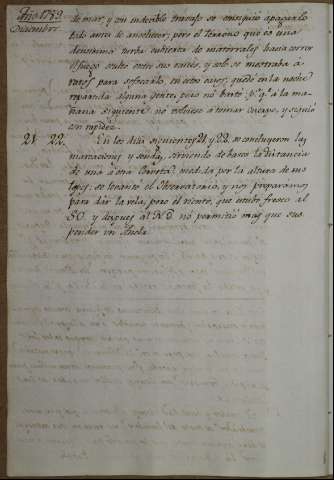 Año 1789
Diciembre.
de mar, y con indecible trabajo se consiguió apagarlo
todo antes de anochecer; pero el terreno que es una
densissima turba cubierta de matorrales hacia correr
el fuego oculto entre sus raices, y solo se mostraba á
ratos para sofocarlo, en esto quedó en la noche
reparada alguna gente, esto no bastó, pª qᵉ á la ma-
ñana siguiente no volviese á tomar cuerpo, y siguió
con rapidez.
21 22. En los dias siguientes 21 y 22. se concluyeron las
marcaciones y sonda, sirviendo de bases la distancia
de una á otra Corveta medida por la altura de sus
topes; se levantó el Observatorio, y nos preparamos
para dar la vela, pero el viento, que estubo fresco al
SO. y despues al NO. no permitió mas que sus-
pender un Ancla.